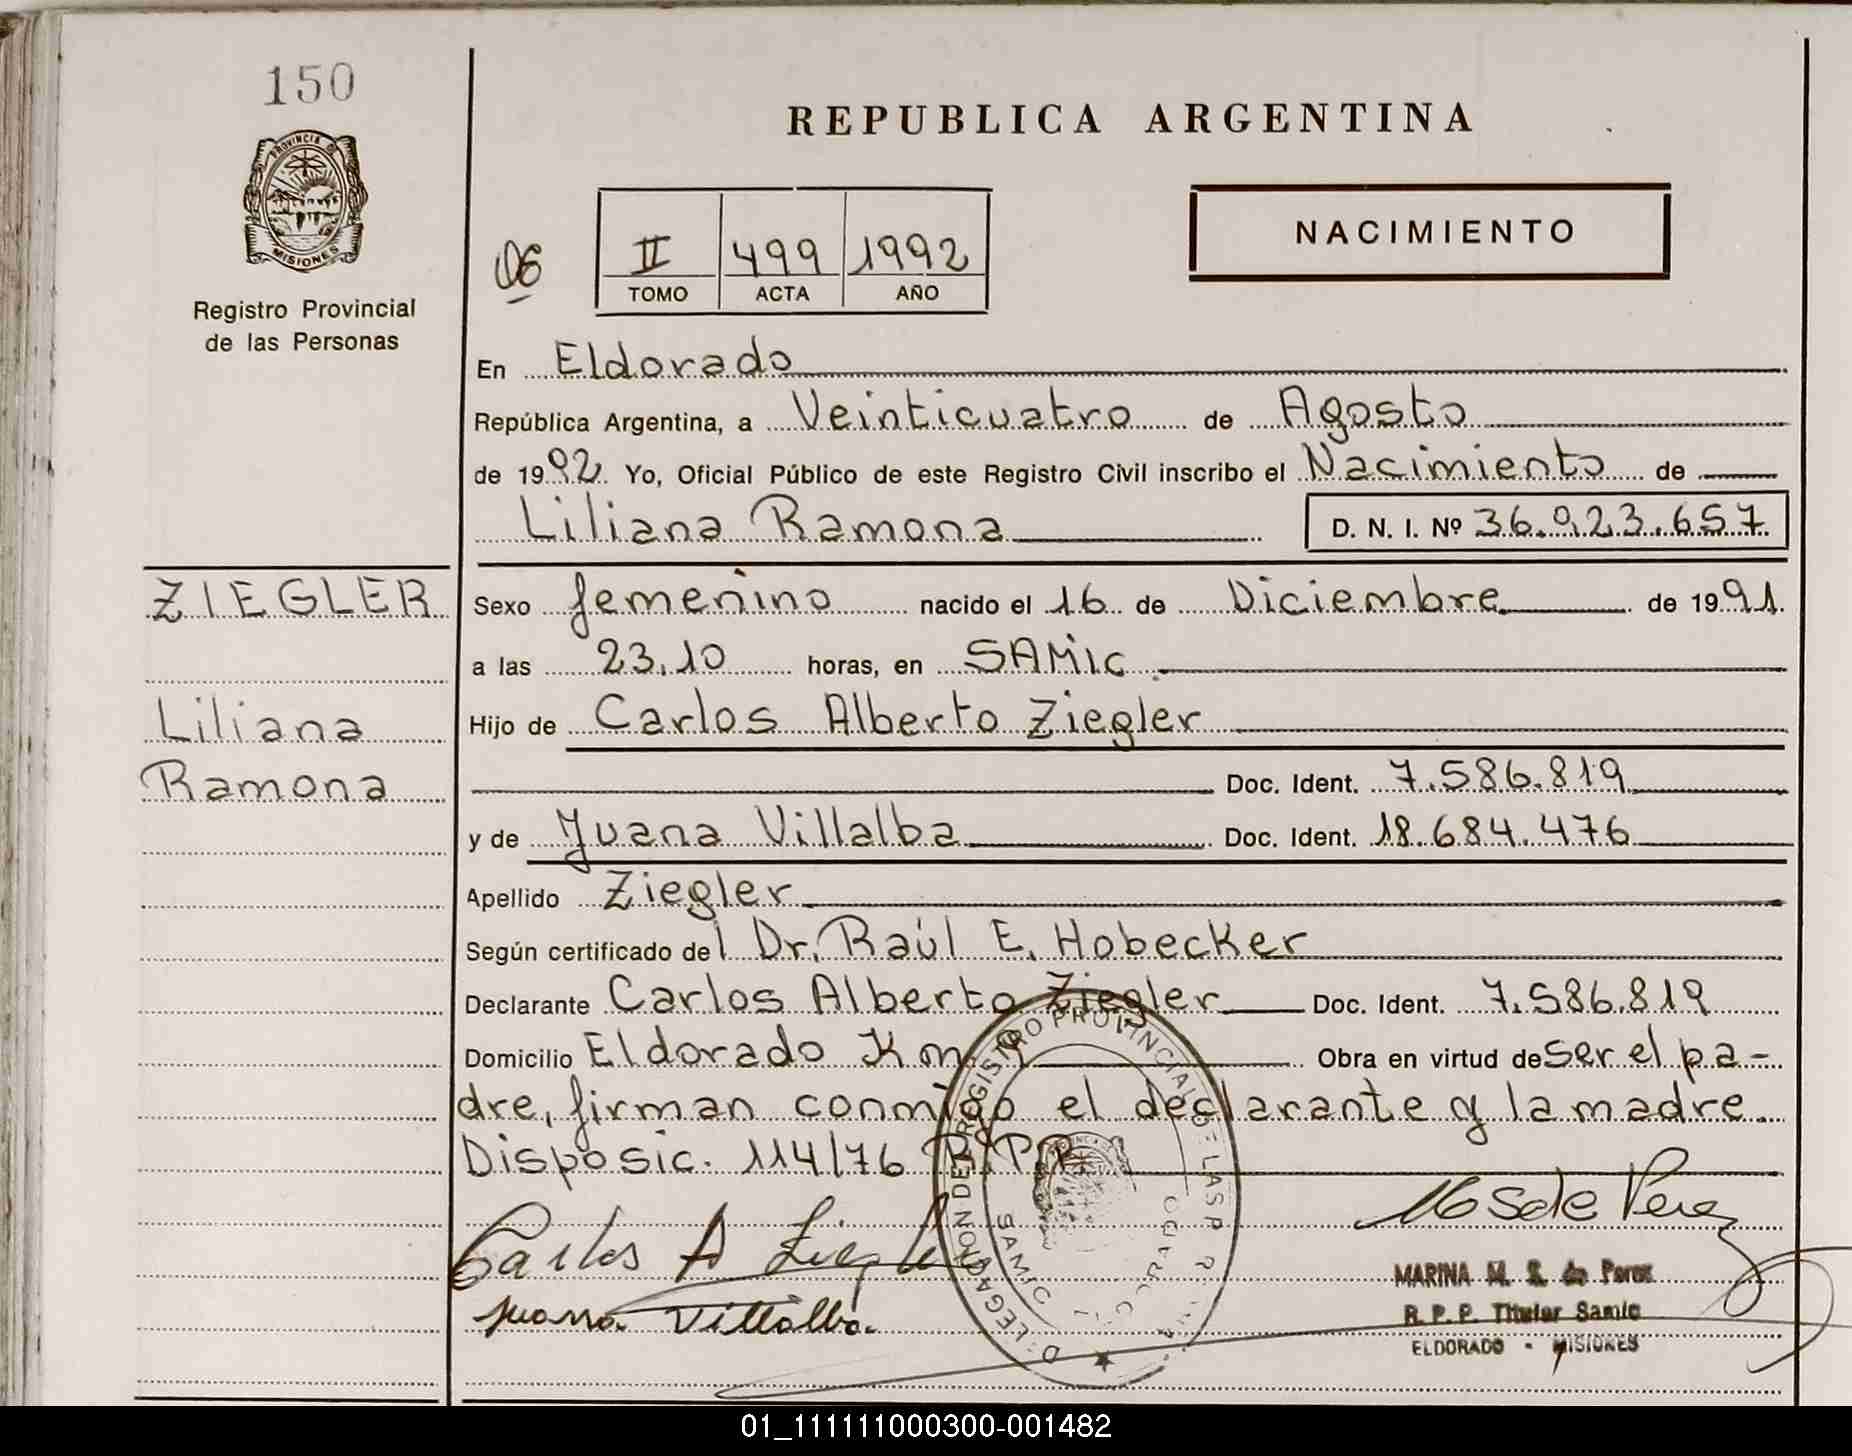 150
PROVINCIA DE
MISIONES
Registro Provincial
de las Personas
REPUBLICA ARGENTINA
06
II 499 1992
TOMO ACTA AÑO
NACIMIENTO
En Eldorado
República Argentina, a Veinticuatro de Agosto
de 1992 Yo, Oficial Público de este Registro Civil inscribo el Nacimiento de
Liliana Ramona D. N. I. Nº 36.023.657
ZIEGLER
Liliana
Ramona
Sexo femenino nacido el 16 de Diciembre de 1991
a las 23.10 horas, en SAMIC
Hijo de Carlos Alberto Ziegler
Doc. Ident. 7.586.819
y de Juana Villalba Doc. Ident. 18.684.476
Apellido Ziegler
Según certificado del Dr. Raúl E. Hobecker
Declarante Carlos Alberto Ziegler Doc. Ident. 7.586.819
Domicilio Eldorado Km. 9 Obra en virtud de ser el pa-
dre, firman conmigo el declarante y la madre.
Disposic. 114/76 R.P.P.
Carlos A Ziegler
Juana Villalba
DELEGACION DEL REGISTRO PROVINCIAL DE LAS P
SAMIC
MARINA M. S. de Perez
R. P. P. Titular Samic
ELDORADO - MISIONES
01_111111000300-001482